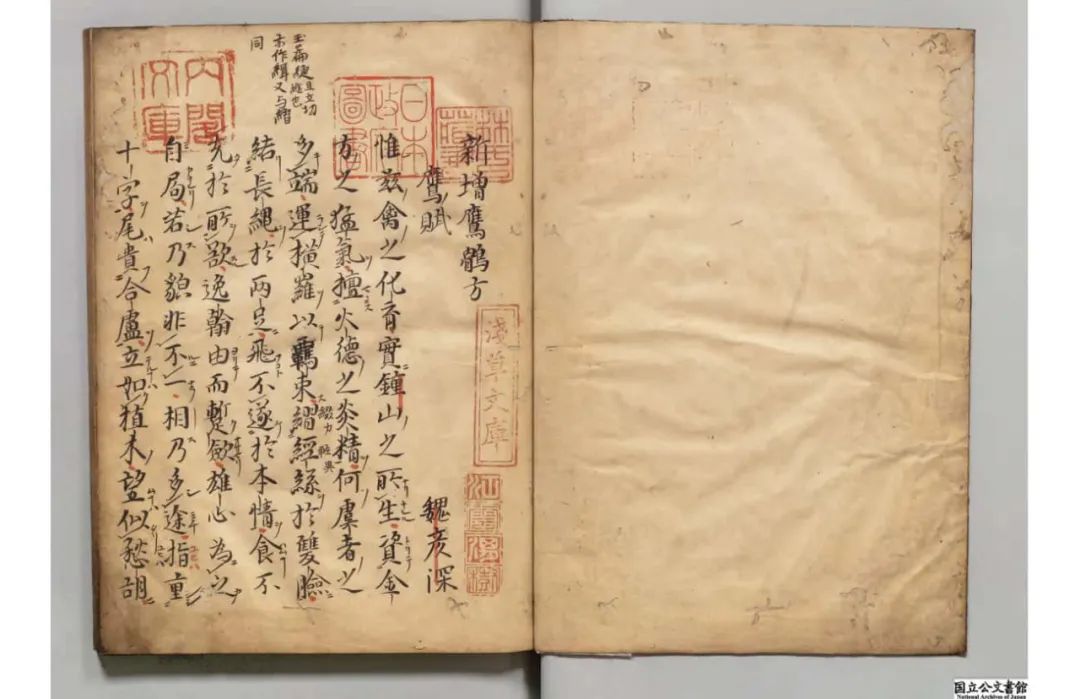 新增鷹鶻方
鷹賦 魏彦深
惟茲禽之化育實鍾山之所生資金
方之猛氣擅火德之炎精何虞者之
多端運横羅以羈束縎經絲於雙瞼
結長繩於兩足飛不遂於本情食不
充於所欲逸翰由而蹔歛雄心為之
自局若乃貌非不一相乃多途指重
十字尾貴合盧立如植木望似愁胡
亦作緝又与縎
同
林氏藏書
日本政府圖書
内閣文庫
淺草文庫
江雲渭樹
国立公文書館
National Archives of Japan